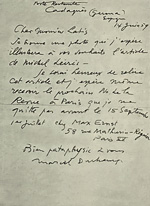 Poste Restante
Cadaquès (Gerona)
Espagne
14 Juin 59
Cher Germinis Latis
Je trouve une photo qui j'espère
illustrera à vos souhaits l'article
de Michel Leiris —
Je serai heureux de relire
cet article et j'espère même
recevoir le prochain No de la
Revue à Paris que je ne
quitte pas avant le 15 Septembre
chez Max Ernst
58 rue Mathurin-Régnier
Paris XV
Bien pataphysique à vous
Marcel Duchamp